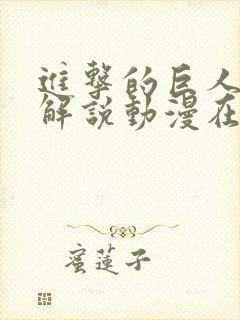 進撃的巨人
解説動漫在
蜜蓮子